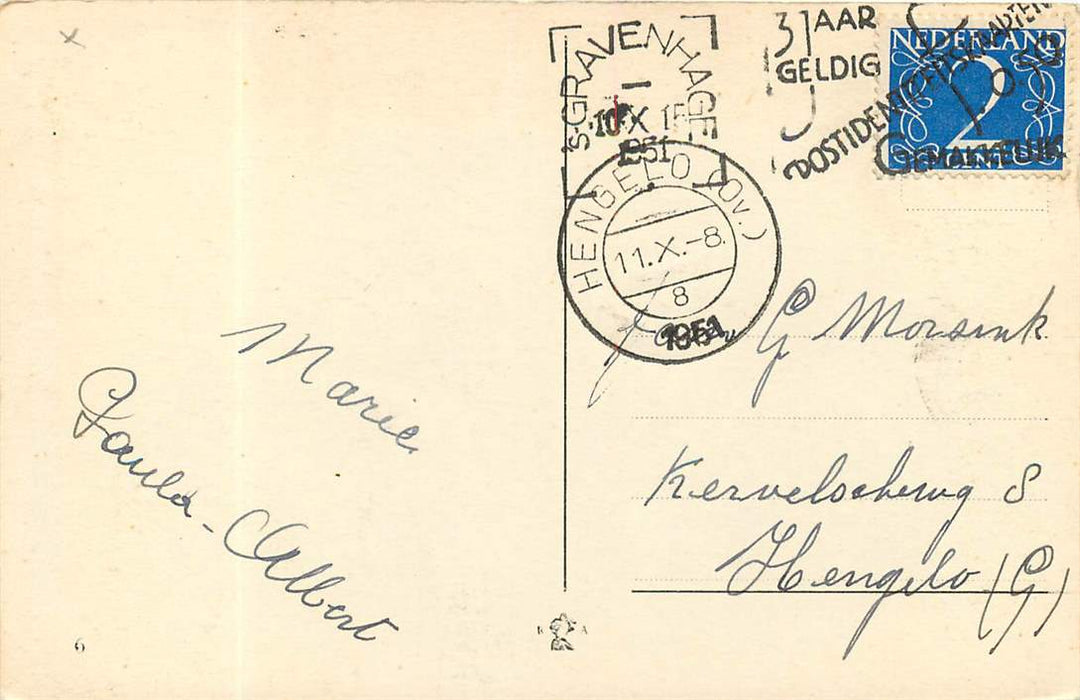 'S-GRAVENHAGE
10 X 15
1951
3 JAAR
GELDIG
POSTIDENTITEITSKAARTEN
GEMAKKELIJK
NEDERLAND
2
HENGELO (Ov.)
11.X.-8
8
1951
G Morsink
Marie
Paula - Albert
Hengelo (G)
K A
6